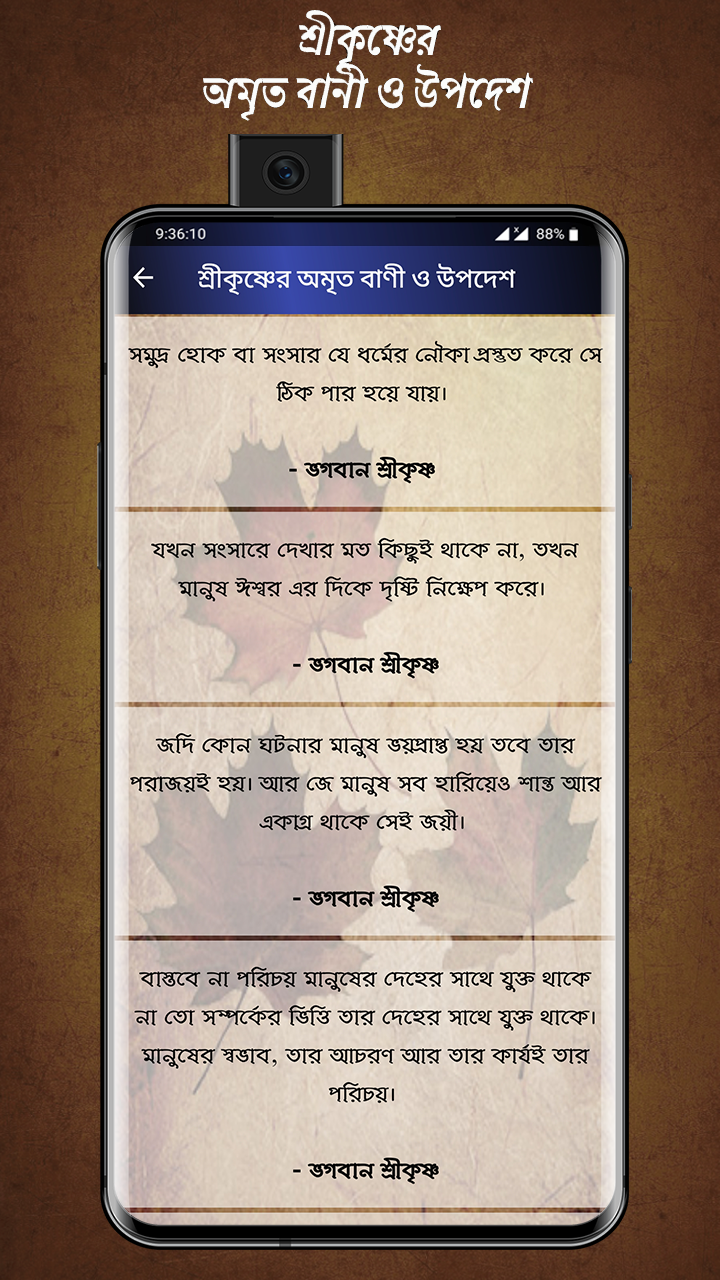 শ্রীকৃষ্ণের
অমৃত বানী ও উপদেশ
9:36:10
88%
শ্রীকৃষ্ণের অমৃত বাণী ও উপদেশ
সমুদ্র হোক বা সংসার যে ধর্মের নৌকা প্রস্তুত করে সে
ঠিক পার হয়ে যায়।
- ভগবান শ্রীকৃষ্ণ
যখন সংসারে দেখার মত কিছুই থাকে না, তখন
মানুষ ঈশ্বর এর দিকে দৃষ্টি নিক্ষেপ করে।
- ভগবান শ্রীকৃষ্ণ
জদি কোন ঘটনার মানুষ ভয়প্রাপ্ত হয় তবে তার
পরাজয়ই হয়। আর জে মানুষ সব হারিয়েও শান্ত আর
একাগ্র থাকে সেই জয়ী।
- ভগবান শ্রীকৃষ্ণ
বাস্তবে না পরিচয় মানুষের দেহের সাথে যুক্ত থাকে
না তো সম্পর্কের ভিত্তি তার দেহের সাথে যুক্ত থাকে।
মানুষের স্বভাব, তার আচরণ আর তার কার্যই তার
পরিচয়।
- ভগবান শ্রীকৃষ্ণ